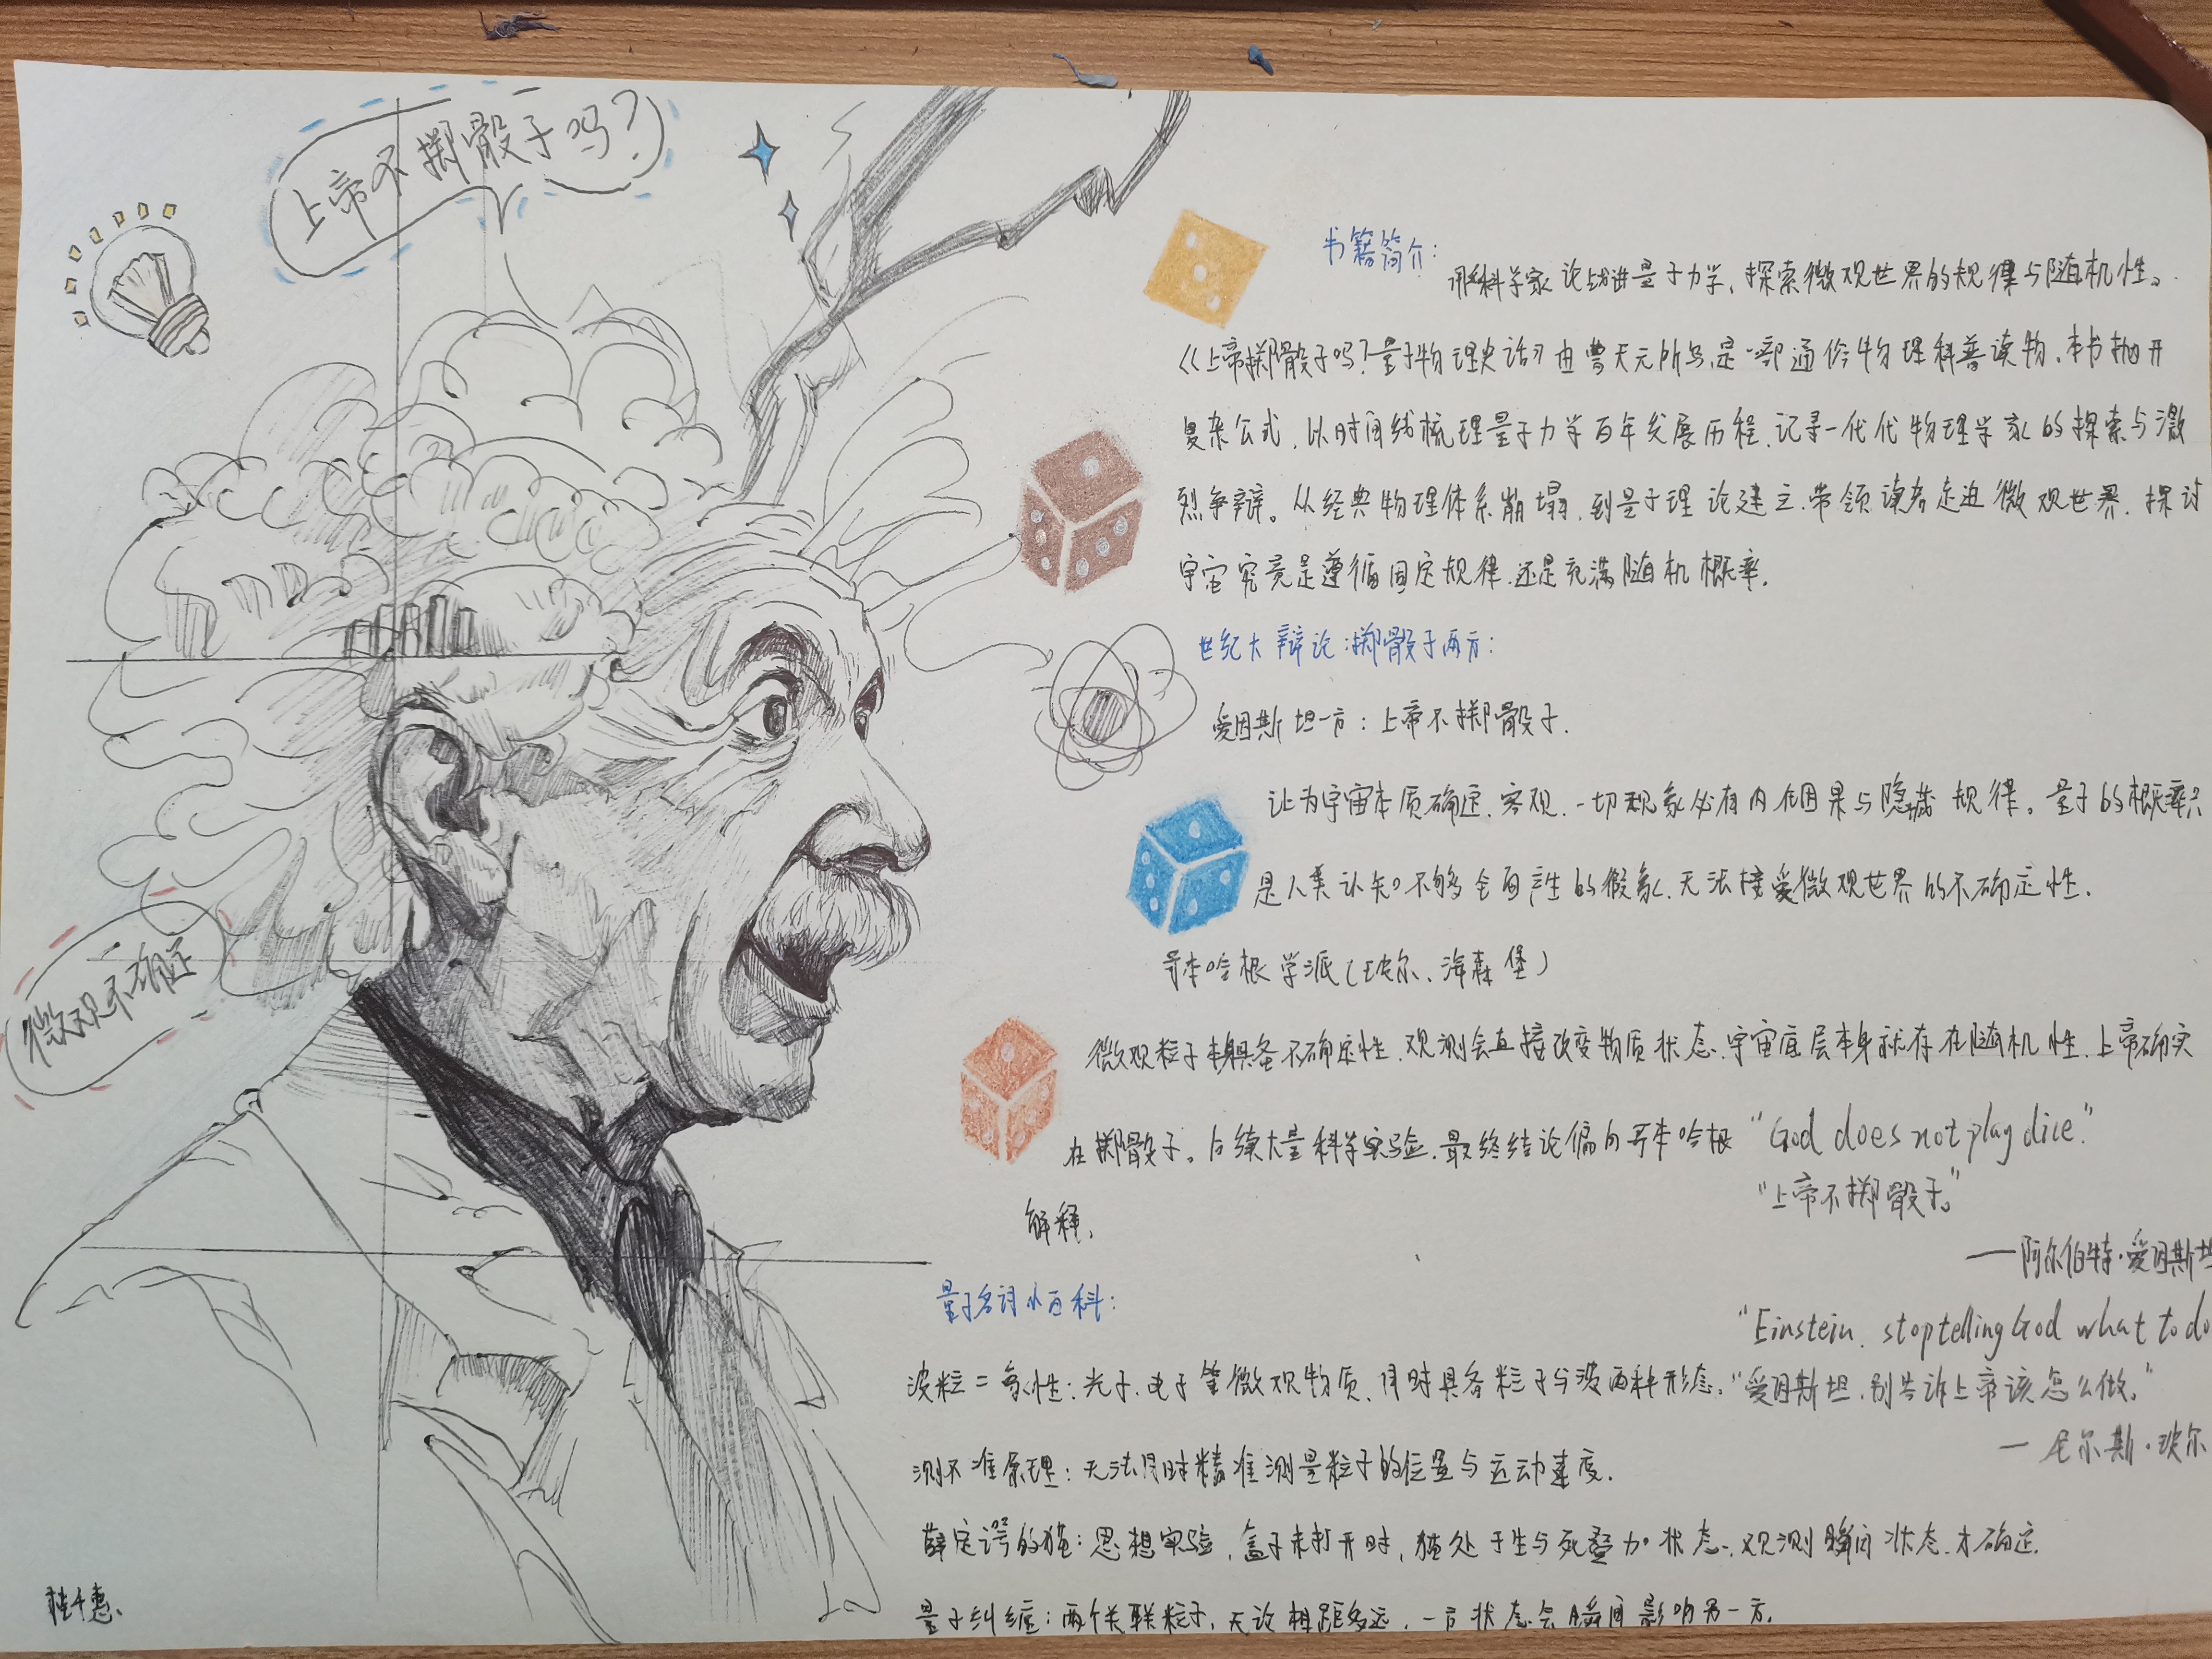 上帝不掷骰子吗?
书籍简介:
用科学家论战讲量子力学,探索微观世界的规律与随机性。
《上帝掷骰子吗?量子物理史话》由曹天元所写,是一部通俗物理科普读物,本书抛开
复杂公式,以时间线梳理量子力学百年发展历程,记录一代代物理学家的探索与激
烈争辩。从经典物理体系崩塌,到量子理论建立,带领读者走进微观世界,探讨
宇宙究竟是遵循固定规律,还是充满随机概率。
世纪大辩论:掷骰子两方:
爱因斯坦一方:上帝不掷骰子.
认为宇宙本质确定、客观,一切现象必有内在因果与隐藏规律。量子的概率只
是人类认知不够全面产生的假象,无法接受微观世界的不确定性.
微观不确定
哥本哈根学派(玻尔、海森堡)
微观粒子本身具备不确定性,观测会直接改变物质状态,宇宙底层本身就存在随机性,上帝确实
在掷骰子。后续大量科学实验,最终结论偏向哥本哈根
解释,
"God does not play dice."
"上帝不掷骰子。"
——阿尔伯特·爱因斯坦
量子名词小百科:
"Einstein, stop telling God what to do
波粒二象性:光子、电子等微观物质,同时具备粒子与波两种形态,
"爱因斯坦,别告诉上帝该怎么做。"
— 尼尔斯·玻尔
测不准原理:无法同时精准测量粒子的位置与运动速度.
薛定谔的猫:思想实验,盒子未打开时,猫处于生与死叠加状态,观测瞬间状态才确定.
量子纠缠:两个关联粒子,无论相距多远,一方状态会瞬间影响另一方.